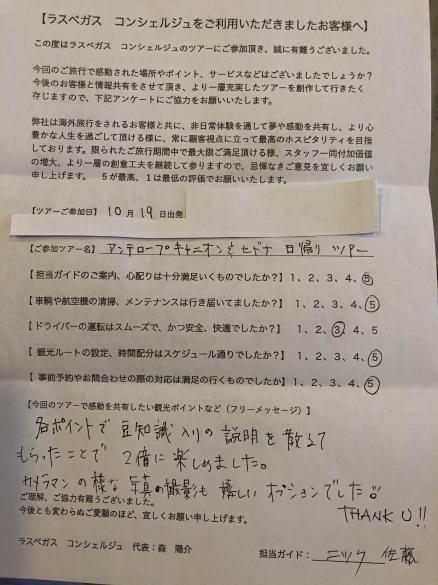 【ラスベガス コンシェルジュをご利用いただきましたお客様へ】
この度はラスベガス コンシェルジュのツアーにご参加頂き、誠に有難うございました。
今回のご旅行で感動された場所やポイント、サービスなどはございましたでしょうか?
今後のお客様と情報共有をさせて頂き、より一層充実したツアーを創作して行きたく
存じますので、下記アンケートにご協力をお願いいたします。
弊社は海外旅行をされるお客様と共に、非日常体験を通して夢や感動を共有し、より心
豊かな人生を過ごして頂ける様に、常に顧客視点に立って最高のホスピタリティを目指
しております。限られたご旅行期間中で最大限ご満足頂ける様、スタッフ一同付加価値
の増大、より一層の創意工夫を継続して参りますので、忌憚なきご意見を宜しくお願い
申し上げます。 5が最高、1は最低の評価でお願いいたします。
【ツアーご参加日】 10月19日出発
【ご参加ツアー名】 アンテロープキャニオン&セドナ 日帰り ツアー
【担当ガイドのご案内、心配りは十分満足いくものでしたか?】 1、2、3、4、5
【車輌や航空機の清掃、メンテナンスは行き届いてましたか?】 1、2、3、4、5
【ドライバーの運転はスムーズで、かつ安全、快適でしたか?】 1、2、3、4、5
【観光ルートの設定、時間配分はスケジュール通りでしたか?】 1、2、3、4、5
【事前予約やお問合わせの際の対応は満足の行くものでしたか】 1、2、3、4、5
【今回のツアーで感動を共有したい観光ポイントなど(フリーメッセージ)】
各ポイントで 豆知識入りの 説明を
もらったことで 2倍に楽しめました。
カメラマンの様な 写真の撮影も 嬉しい オプションでした
THANK U!!
ご理解、ご協力有難うございました。
今後とも変わらぬご愛顧のほど、宜しくお願い申し上げます。
ラスベガス コンシェルジュ 代表:森 陽介
担当ガイド: ニック 佐藤